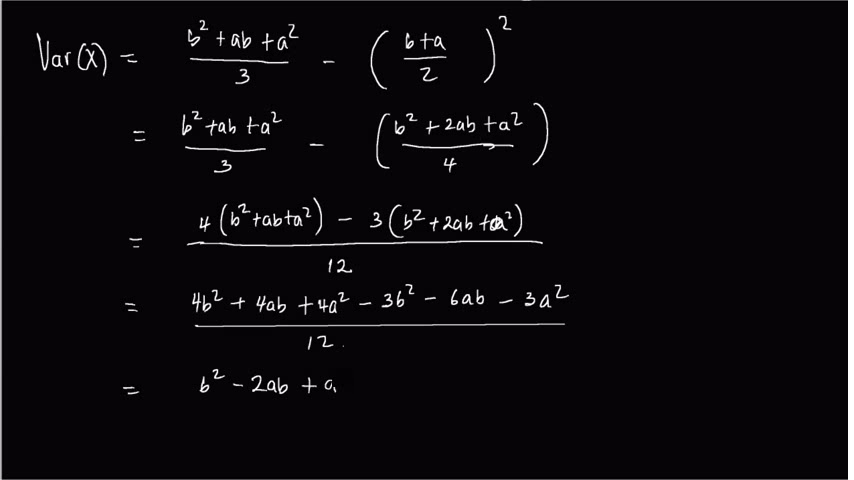 Var(X) = (b² + ab + a²)/3 - ((b+a)/2)²
= (b² + ab + a²)/3 - ((b² + 2ab + a²)/4)
= (4(b² + ab + a²) - 3(b² + 2ab + a²))/12
= (4b² + 4ab + 4a² - 3b² - 6ab - 3a²)/12
= b² - 2ab + a